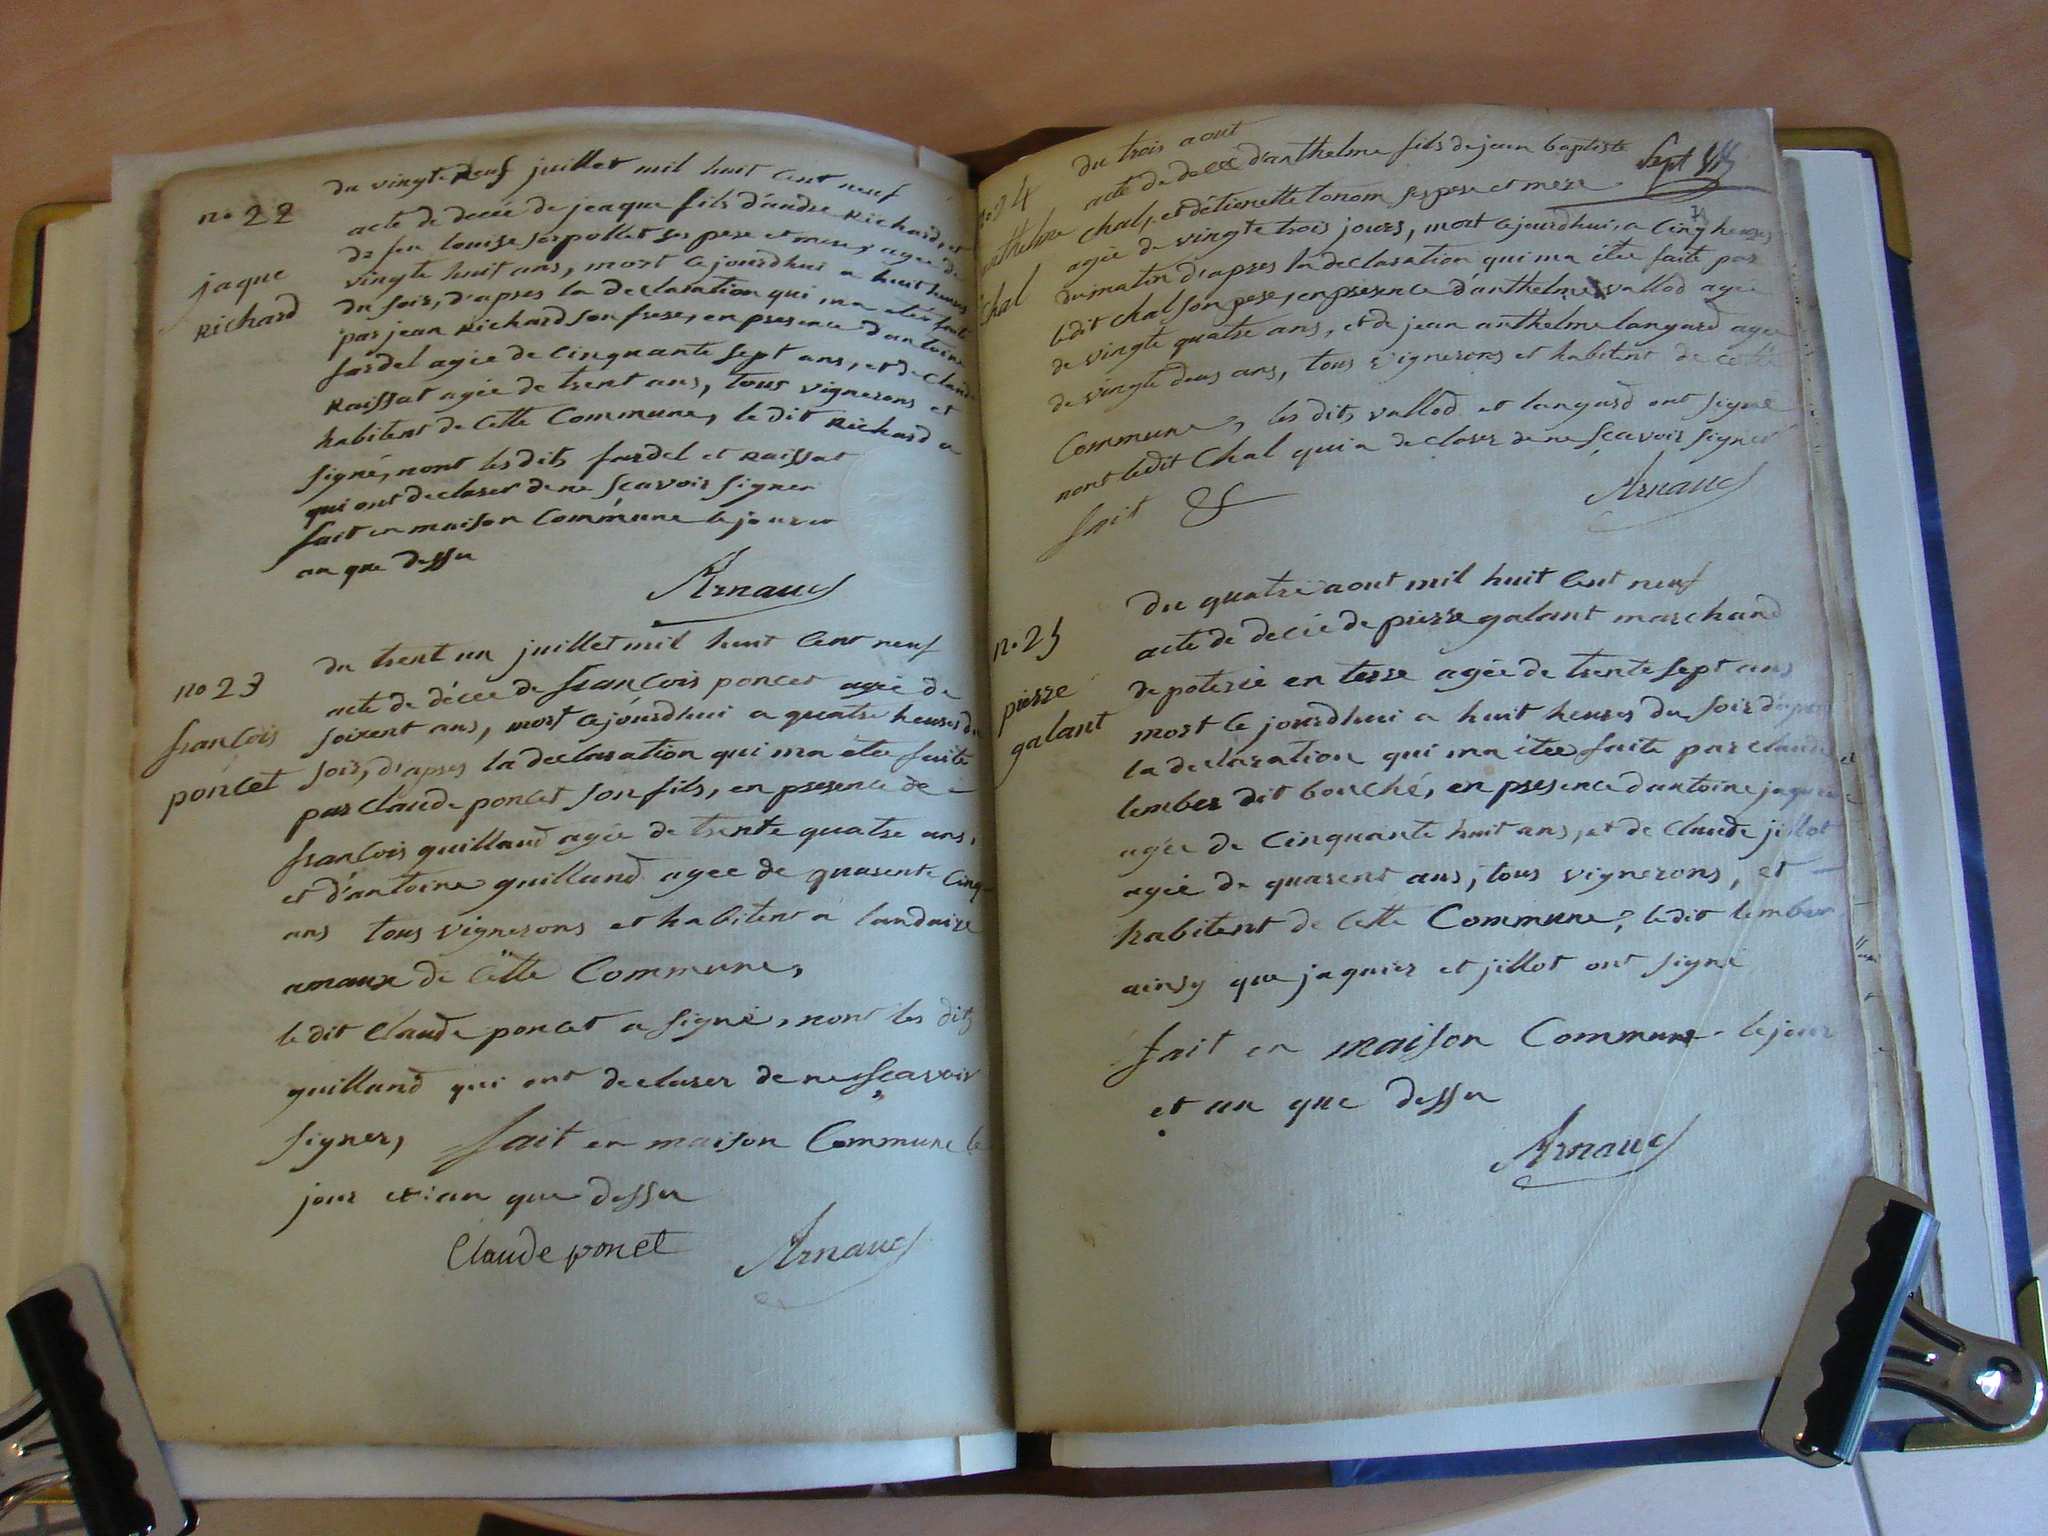 du vingte neuf juillet mil huit cent neuf
no 22
acte de decée de jeaque fils d'andre Richard, et
jaque
Richard
de feu louise sorpollet ses pere et mere, agée de
vingte huit ans, mort cejourdhui a huit heures
du soir, d'apres la declaration qui ma etée faite
par jean Richard son frere, en presence d'antoine
fardel agée de cinquante sept ans, et de Claude
Raissat agée de trent ans, tous vignerons et
habitent de cette Commune, le dit Richard a
signé, nont les dits fardel et Raissat
qui ont declarer de ne sçavoir signer
fait en maison Commune le jour et
an que dessu
Arnaud
du trent un juillet mil huit cent neuf
no 23
françois
poncet
acte de décée de françois poncet agée de
soixent ans, mort cejourdhui a quatre heures du
soir, d'apres la declaration qui ma étée faite
par Claude poncet son fils, en presence de
françois guilland agée de trente quatre ans,
et d'antoine guilland agee de quarente cinq
ans tous vignerons et habitent a landaize
amaux de cette Commune,
le dit Claude poncet a signé, nont les dits
guilland qui ont declarer de ne sçavoir
signer, fait en maison Commune le
jour et an que dessu
Claude poncet Arnaud
du trois aout
no 24
anthelme
Chal
acte de decée d'anthelme fils de jean baptiste
chal, et d'étienette tonom ses pere et mere
agée de vingte trois jours, mort cejourdhui, a cinq heures
du matin d'apres la declaration qui ma étée faite par
ledit chal son pere, en presence d'anthelme vallod agée
de vingte quatre ans, et de jean anthelme langard agée
de vingte deus ans, tous vignerons et habitent de cette
Commune, les dits vallod et langard ont signé
nont ledit Chal qui a declarer de ne sçavoir signer
fait &
Arnaud
du quatre aout mil huit cent neuf
no 25
pierre
galant
acte de decée de pierre galant marchand
de poterie en terre agée de trente sept ans
mort ce jourdhui a huit heures du soir d'apres
la declaration qui ma étée faite par claude
lember dit bouché, en presence d'antoine jaquier
agée de cinquante huit ans, et de Claude jillot
agée de quarent ans, tous vignerons, et
habitent de cette Commune, ledit lember
ainsy que jaquier et jillot ont signé
fait en maison Commune le jour
et an que dessu
Arnaud